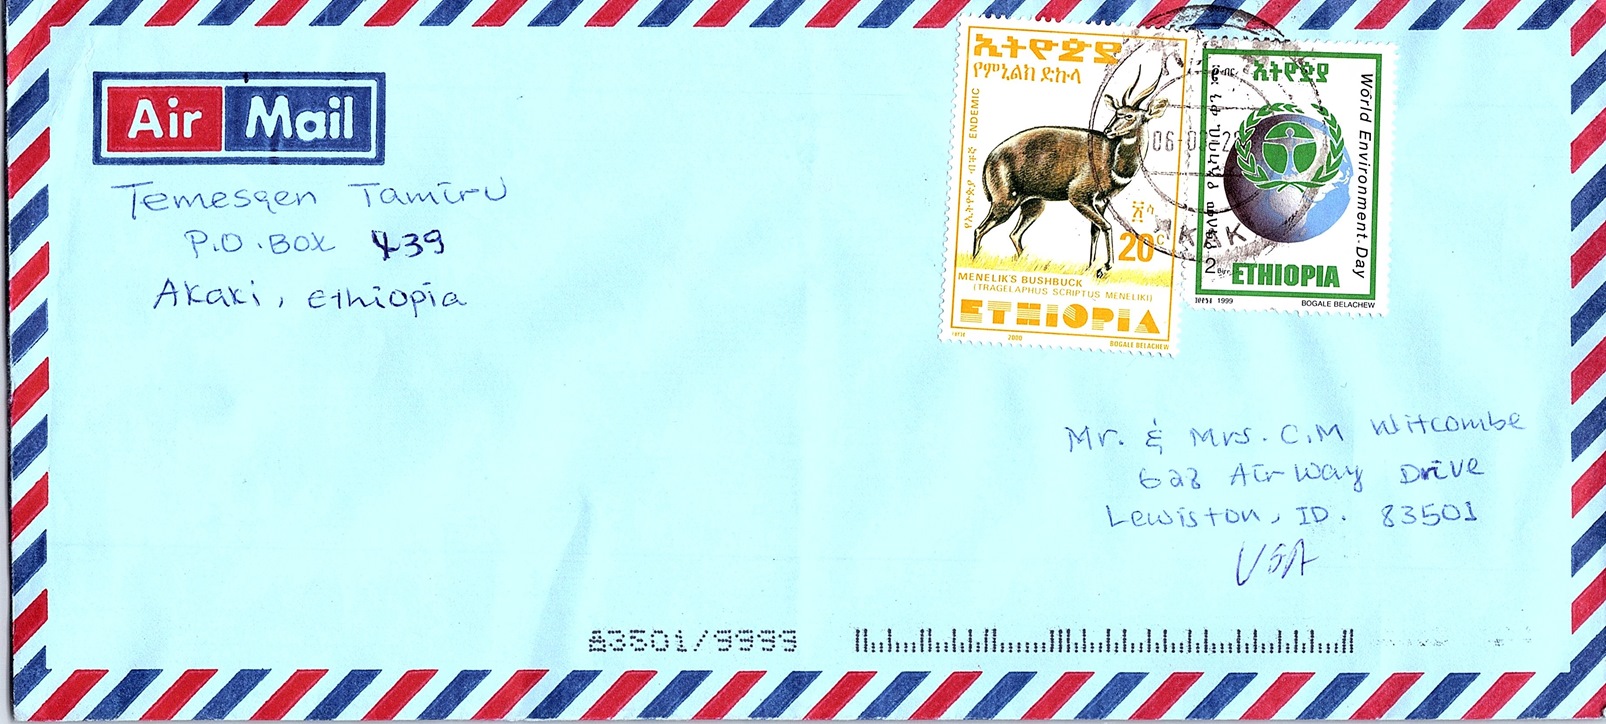 Air Mail
Temesqen Tamiru
P.O.Box 439
Akaki, Ethiopia
ኢትዮጵያ
የምኒልክ ድኩላ
የኢትዮጵያ ብቸኛ ENDEMIC
20c
MENELIK'S BUSHBUCK
(TRAGELAPHUS SCRIPTUS MENELIKI)
ETHIOPIA
2000
BOGALE BELACHEW
ኢትዮጵያ
World Environment Day
2 Birr
ETHIOPIA
1999
BOGALE BELACHEW
Mr. & Mrs. C.M Witcombe
628 Airway Drive
Lewiston, ID. 83501
USA
83501/9999